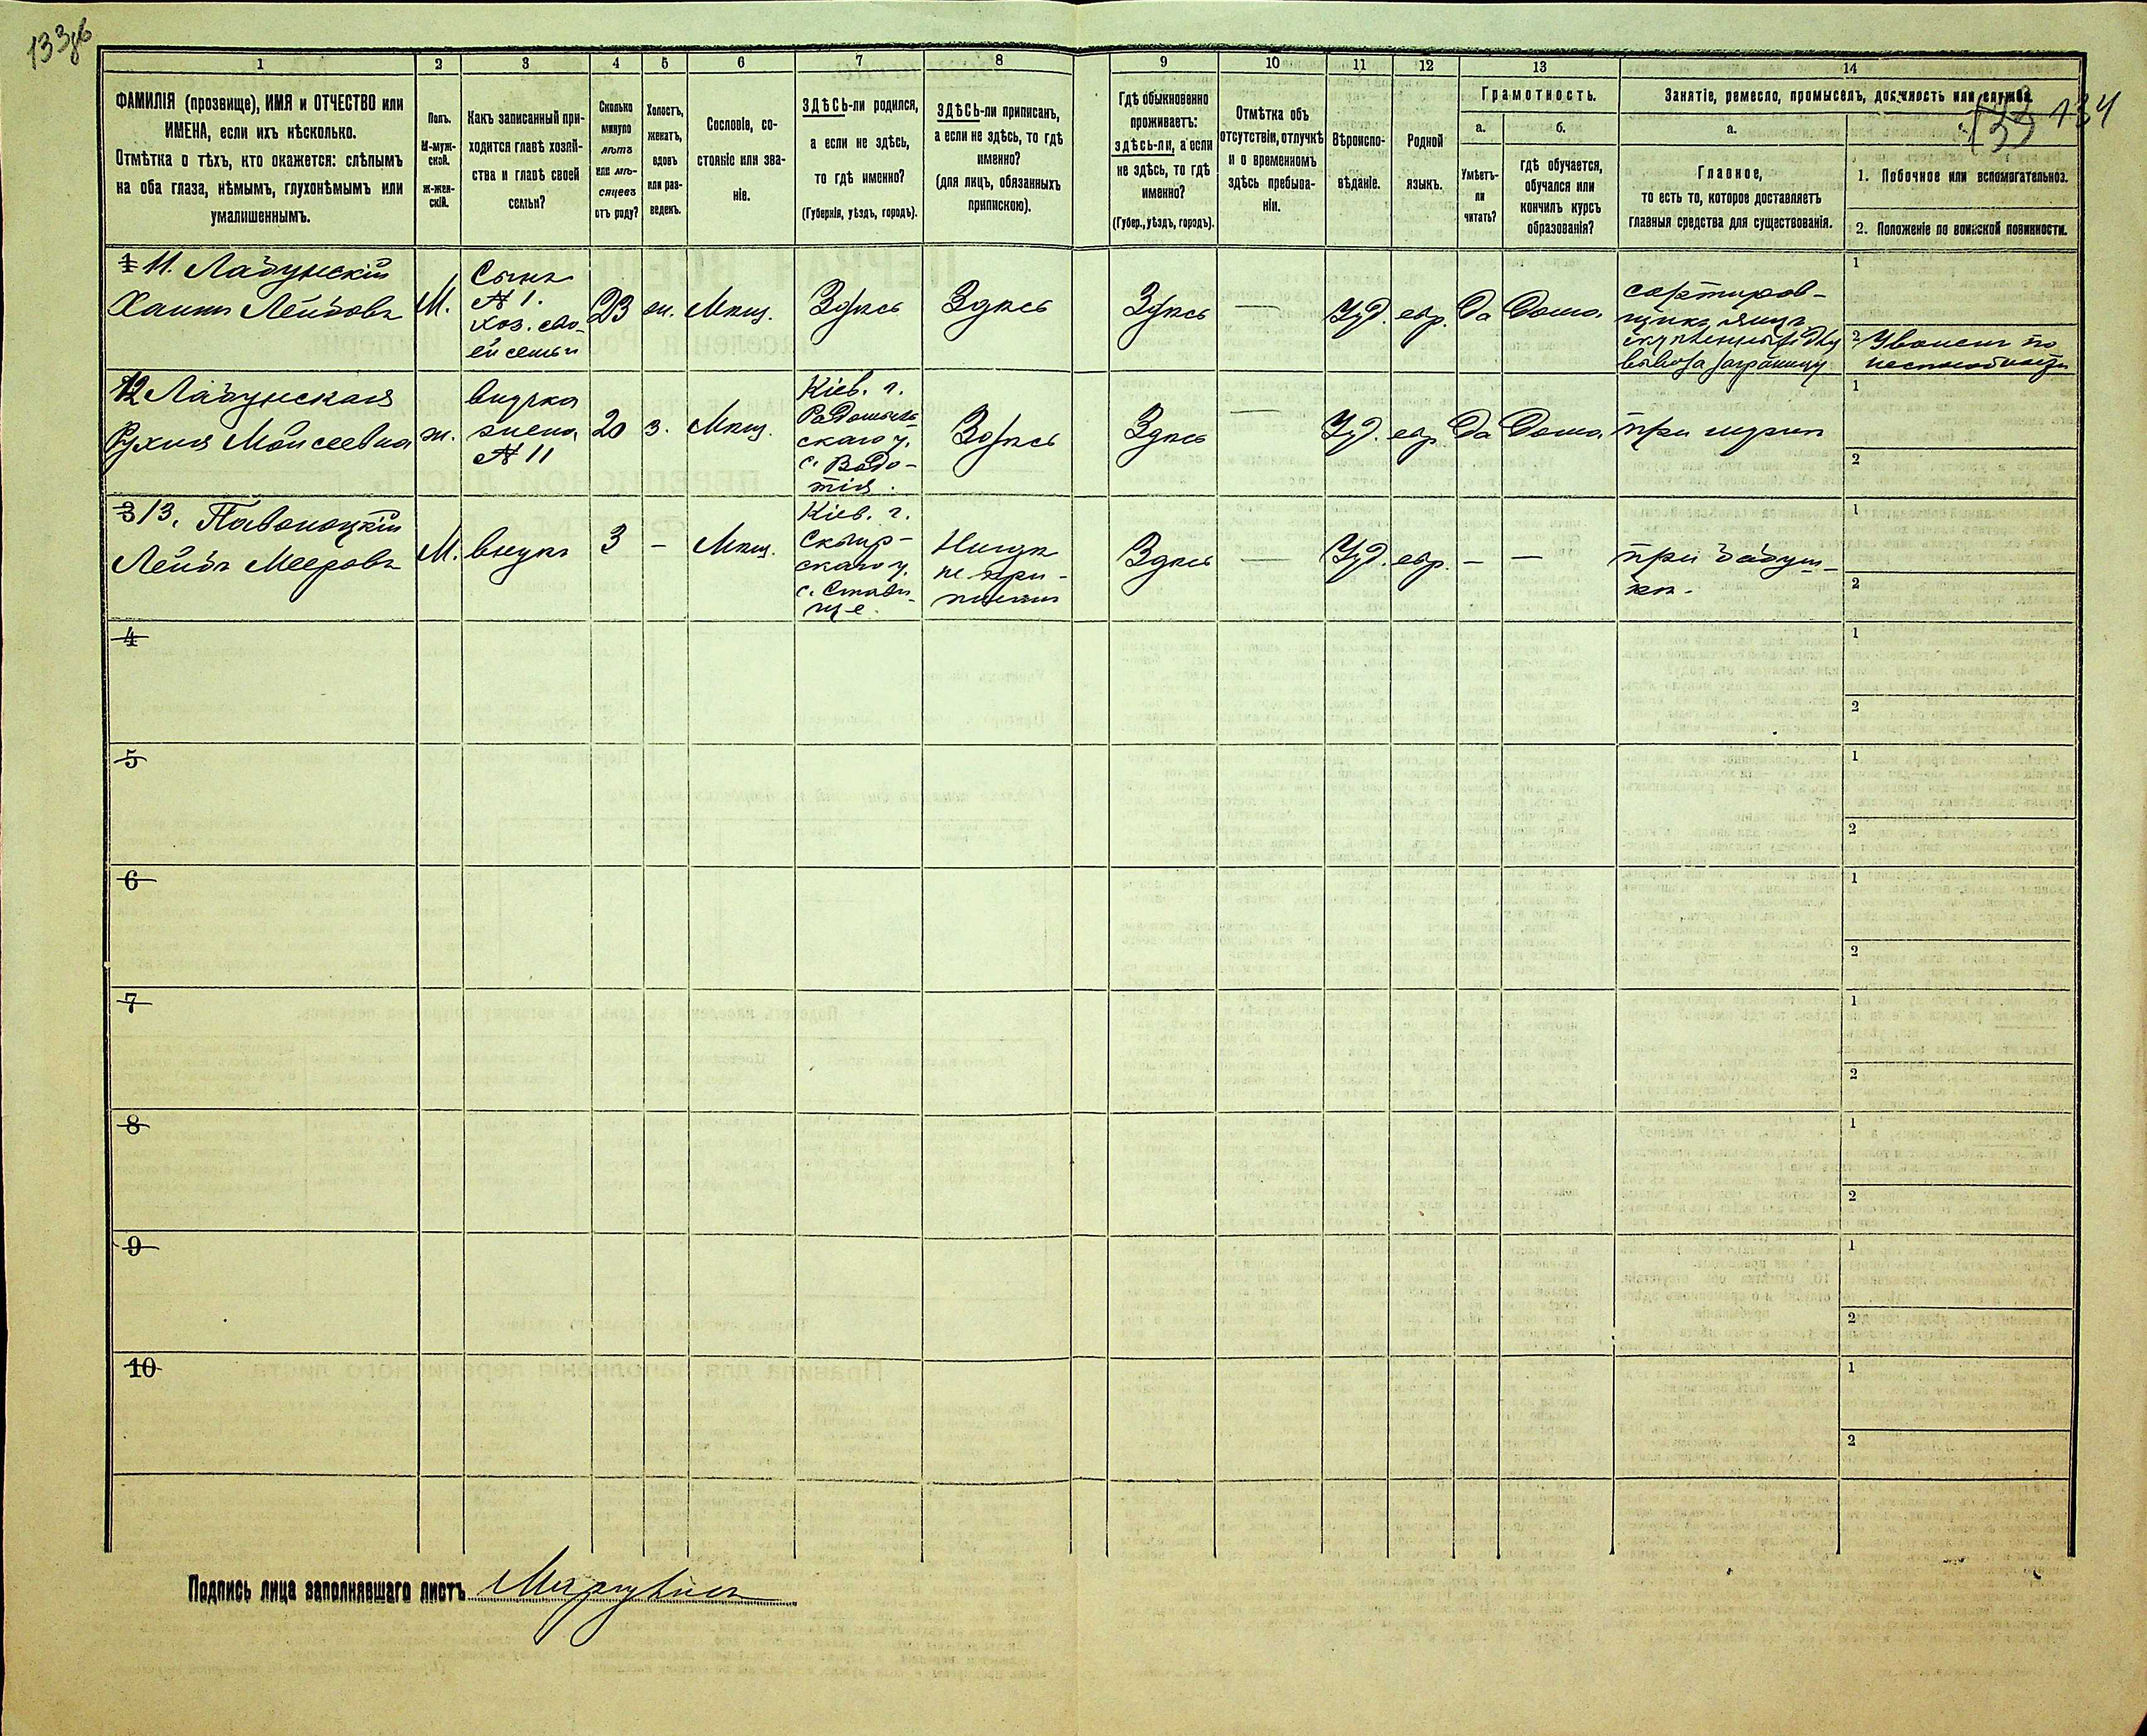 133об
133 134
1 2 3 4 5 6 7 8 9 10 11 12 13 14
ФАМИЛІЯ (прозвище), ИМЯ и ОТЧЕСТВО или
ИМЕНА, если ихъ нѣсколько.
Отмѣтка о тѣхъ, кто окажется: слѣпымъ
на оба глаза, нѣмымъ, глухонѣмымъ или
умалишеннымъ.
Полъ.
М-муж-
ской.
Ж-жен-
скій.
Какъ записанный при-
ходится главѣ хозяй-
ства и главѣ своей
семьи?
Сколько
минуло
лѣтъ
или мѣ-
сяцевъ
отъ роду?
Холостъ,
женатъ,
вдовъ
или раз-
веденъ.
Сословіе, со-
стояніе или зва-
ніе.
ЗДѢСЬ-ли родился,
а если не здѣсь,
то гдѣ именно?
(Губернія, уѣздъ, городъ).
ЗДѢСЬ-ли приписанъ,
а если не здѣсь, то гдѣ
именно?
(для лицъ, обязанныхъ
припискою).
Гдѣ обыкновенно
проживаетъ:
здѣсь-ли, а если
не здѣсь, то гдѣ
именно?
(Губер., уѣздъ, городъ).
Отмѣтка объ
отсутствіи, отлучкѣ
и о временномъ
здѣсь пребыва-
ніи.
Вѣроиспо-
вѣданіе.
Родной
языкъ.
Грамотность.
а.
Умѣетъ-
ли
читать?
б.
гдѣ обучается,
обучался или
кончилъ курсъ
образованія?
Занятіе, ремесло, промыселъ, должность или служба.
а.
Главное,
то есть то, которое доставляетъ
главныя средства для существованія.
1. Побочное или вспомогательное.
2. Положеніе по воинской повинности.
1 11. Лабунскій
Хаимъ Лейбовъ
М.
Сынъ
№ 1.
хоз. сво-
ей семьи
23
ж.
Мѣщ.
Здѣсь
Здѣсь
Здѣсь
—
Iуд.
евр.
Да
Дома
сортиров-
щикъ яицъ
скупленныхъ для
вывоза заграницу
1
2 Уволенъ по
неспособности
12 Лабунская
Рухля Мойсеевна
ж.
внучка
жена
№ 11
20
з.
Мѣщ.
Кіев. г.
Радомысль-
скаго у.
с. Водо-
тія.
Здѣсь
Здѣсь
—
Iуд.
евр.
Да
Дома
при мужѣ
1
2
3 13. Паволоцкій
Лейбъ Мееровъ
М.
внукъ
3
-
Мѣщ.
Кіев. г.
Сквир-
скаго у.
с. Стави-
ще.
Нигдѣ
не при-
писанъ
Здѣсь
—
Iуд.
евр.
-
—
при бабуш-
кѣ.
1
2
4
1
2
5
1
2
6
1
2
7
1
2
8
1
2
9
1
2
10
1
2
Подпись лица заполнявшаго листъ